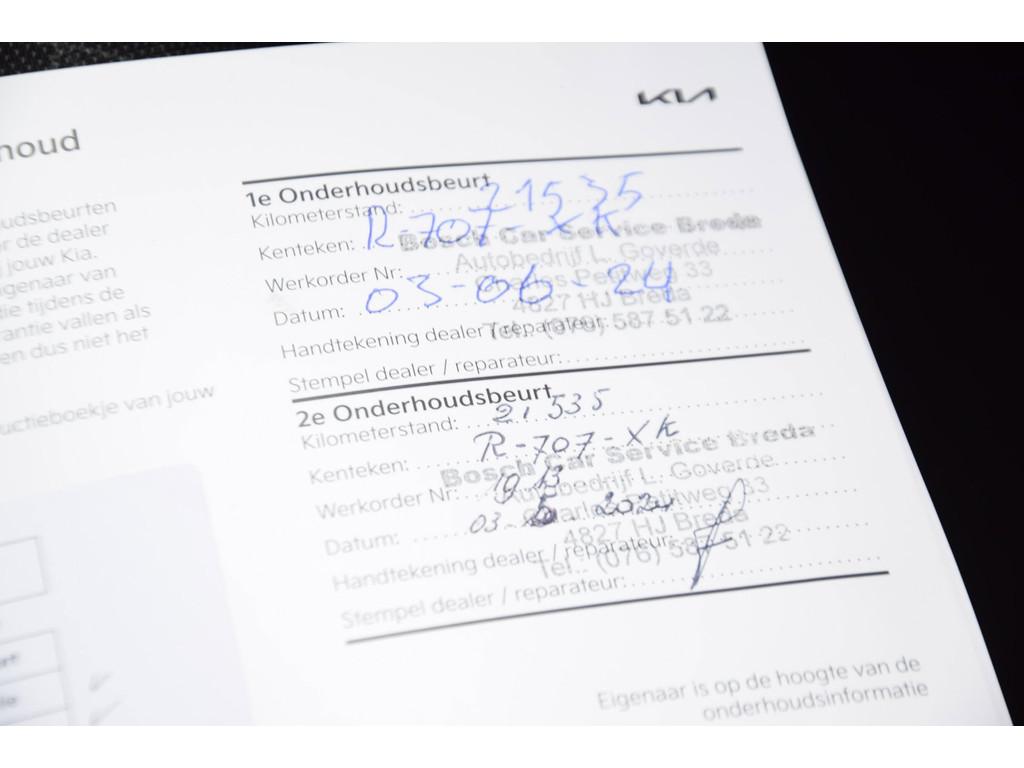 KIA
noud
udsbeurten
r de dealer
jouw Kia.
igenaar van
die tijdens de
rantie vallen als
en dus niet het
uctieboekje van jouw
1e Onderhoudsbeurt
Kilometerstand: 21535
Kenteken: R-707-XK
Bosch Car Service Breda
Werkorder Nr:
Autobedrijf L. Goverde
33
Datum: 03-06-24
4827 HJ Breda
Handtekening dealer / reparateur:
Tel.: (076) 587 51 22
Stempel dealer / reparateur:
2e Onderhoudsbeurt
Kilometerstand: 21.535
Kenteken: R-707-XK
Bosch Car Service Breda
Werkorder Nr:
Autobedrijf L. Goverde
33
Datum: 03- 2024
4827 HJ Breda
Handtekening dealer / reparateur:
Tel.: (076) 587 51 22
Stempel dealer / reparateur:
Eigenaar is op de hoogte van de
onderhoudsinformatie